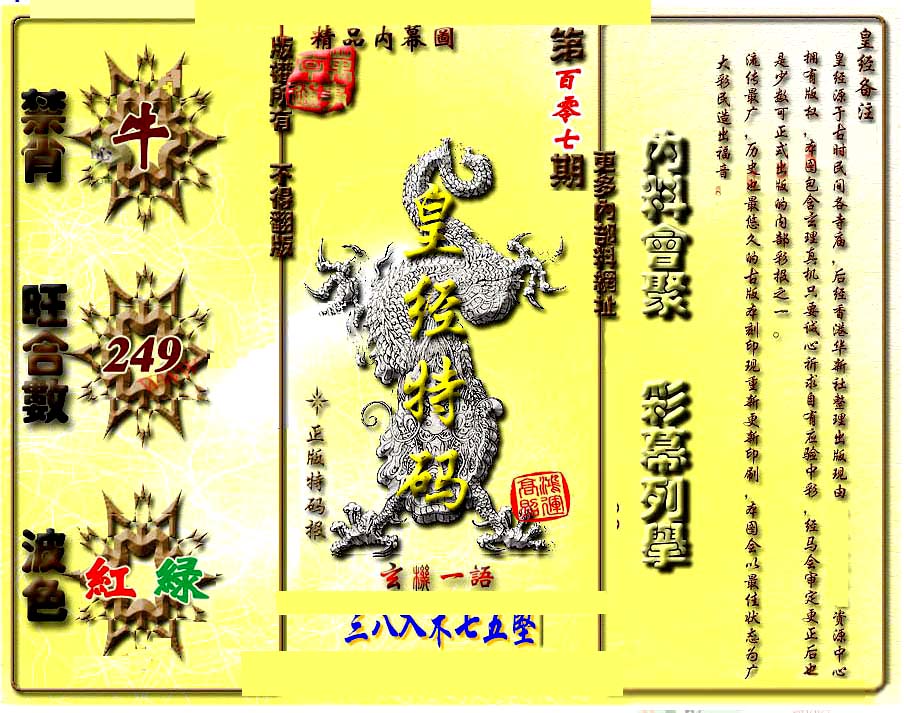 皇经备注
皇经源于古时民间各寺庙，后经香港华新社整理出版现由 资源中心
拥有版权，本图包含玄理真机只要诚心祈求自有应验中彩，经马会审定更正后也
是少数可正式出版的内部彩报之一。
流传最广，历史也最悠久的古版本刻印现重新更新印刷，本图会以最佳状态为广
大彩民造出福音
内料會聚 彩幕列學
更多內部料網址
第百零七期
精品內幕圖
版谱所有 不得翻版
皇经特码
正版特码报
鸿運高照
玄機一語
三八入不七五堅
禁肖
牛
旺合數
249
波色
紅 綠